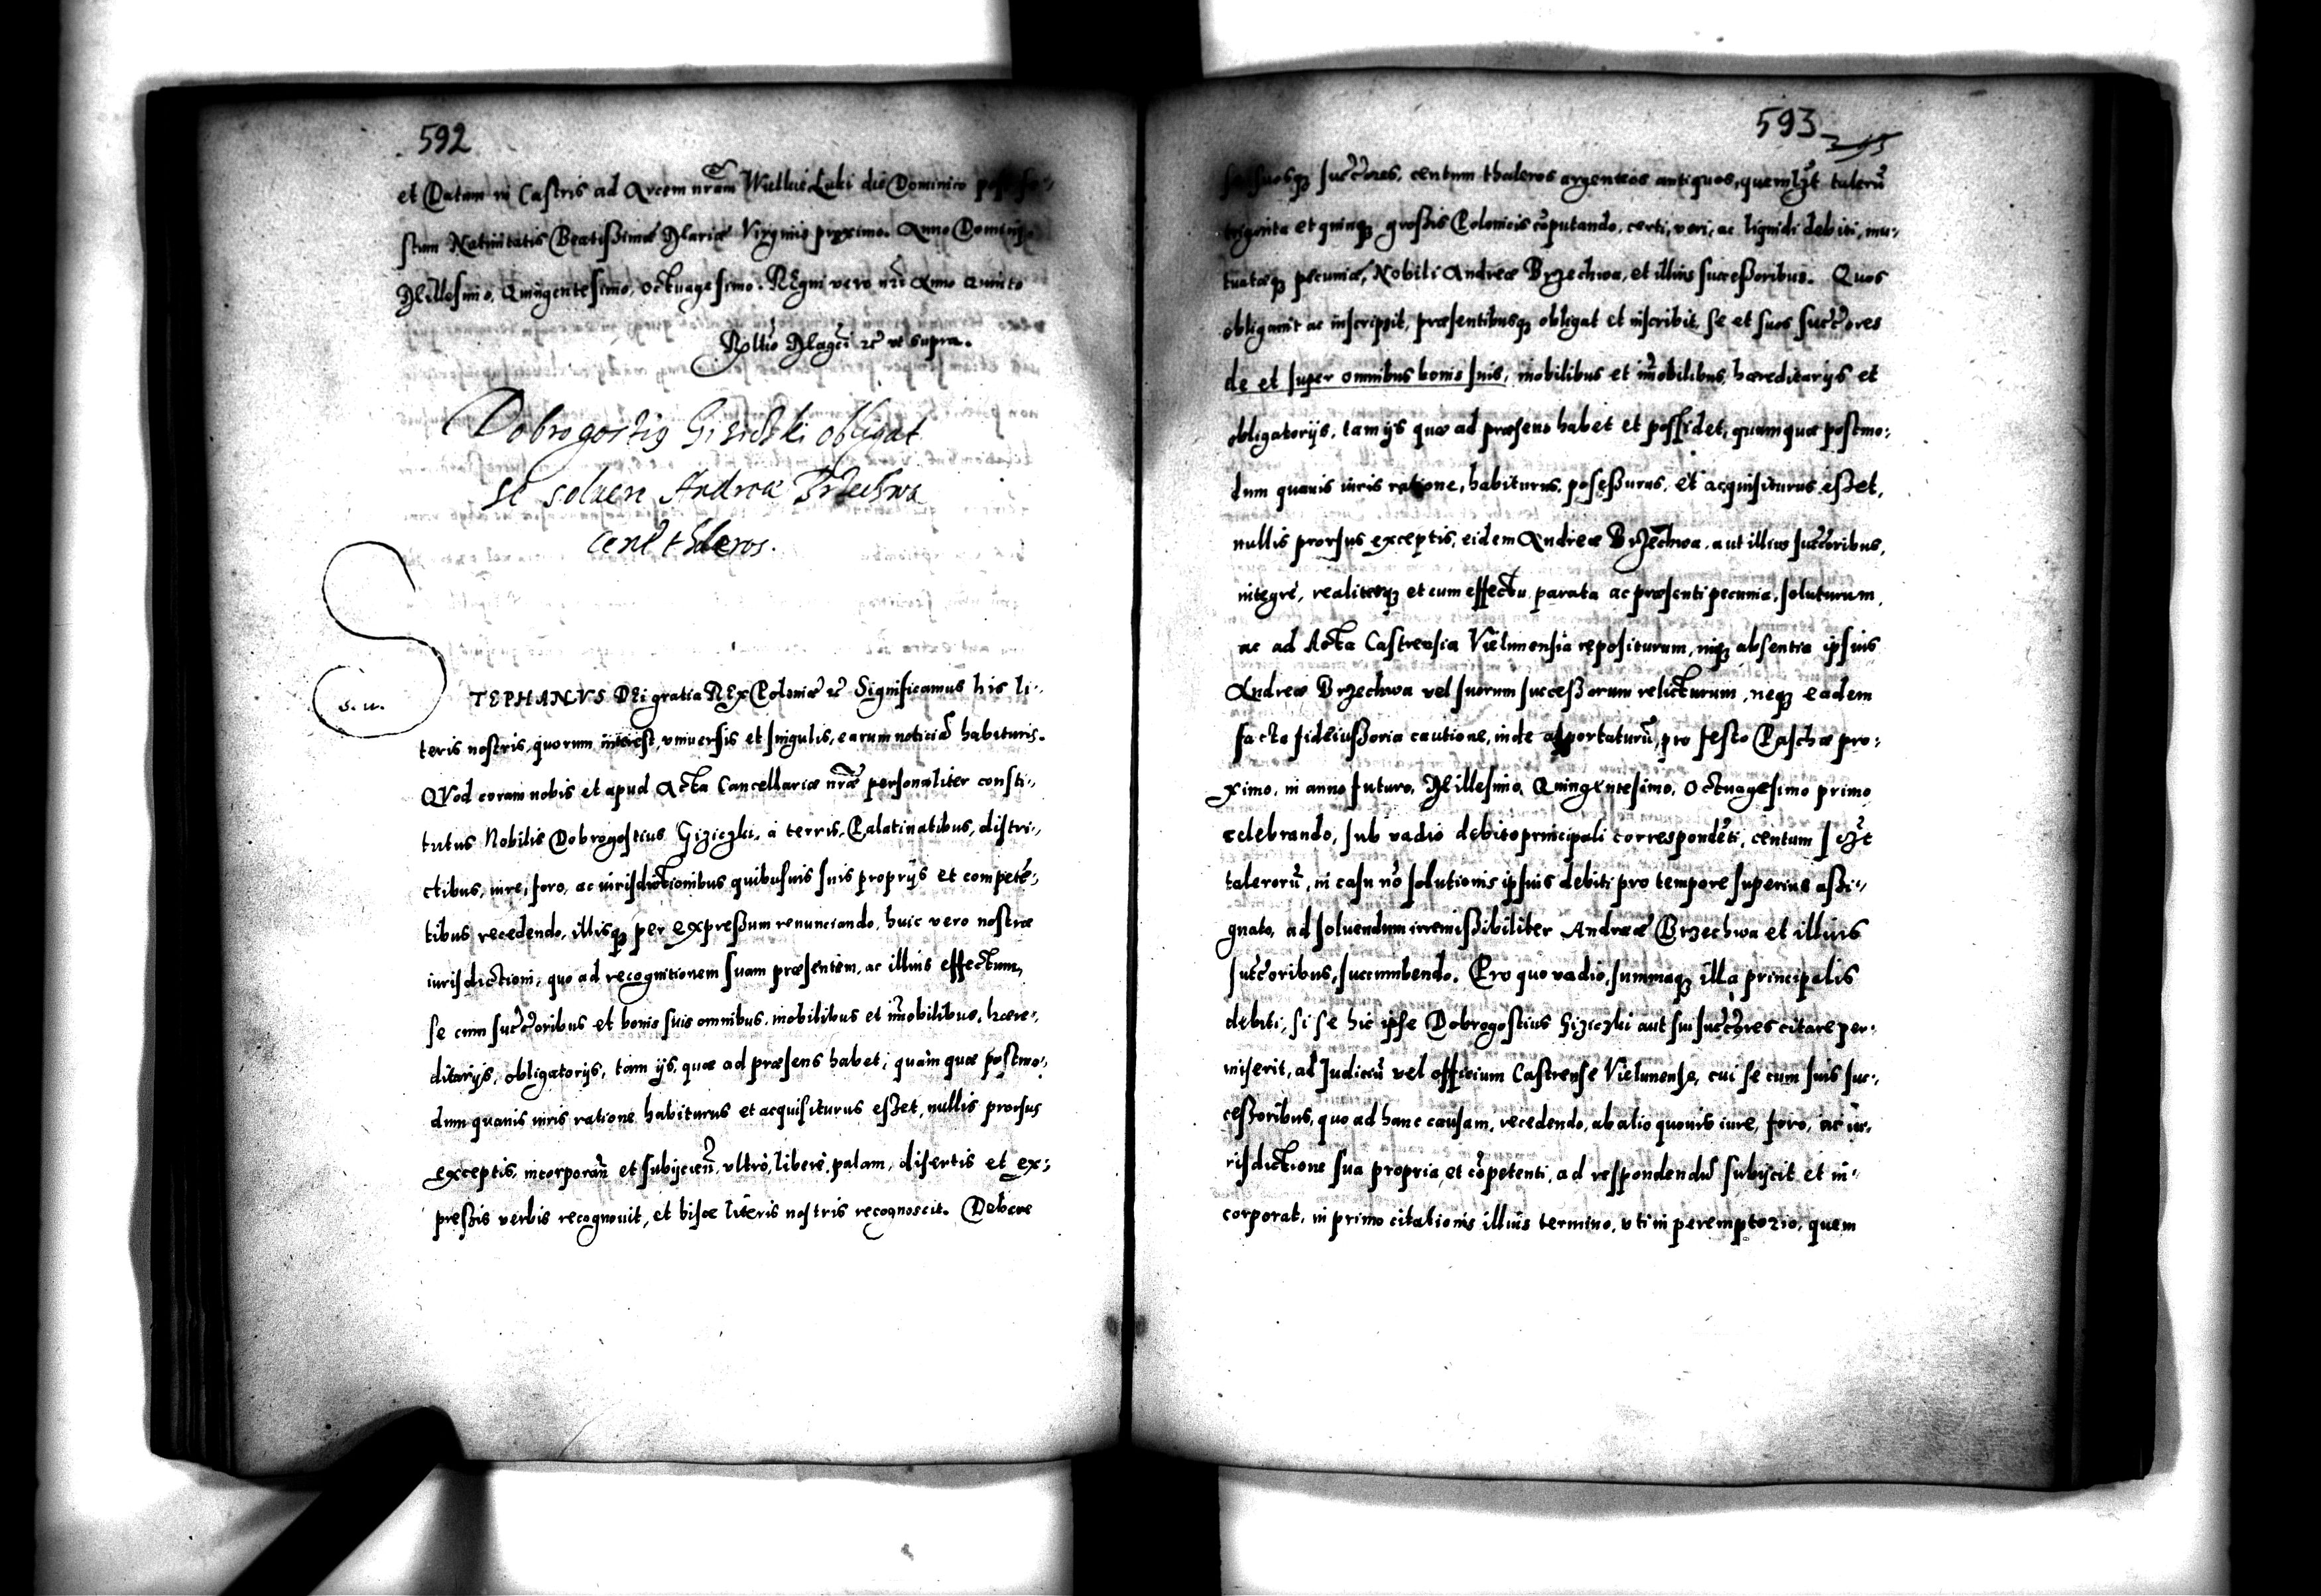 592
et Datam in Castris ad Arcem nrãm Wielkie Luki die Dominico post fe-
stum Natiuitatis Beatissimæ Mariæ Virginis proximo. Anno Domini
Millesimo, Quingentesimo, Octuagesimo. REgni vero nri Anno Quinto
Rltio Magci &c ut supra.
Dobrogostig Gisiczki obligat
se soluere Andreæ Brzechwa
cent thaleros.
s. u.
STEPHANVS DEi gratia REx Poloniæ &c Significamus his li-
teris nostris, quorum interest, vniuersis et singulis, earum noticiã habituris.
QVod coram nobis et apud Acta Cancellariæ nræ personaliter consti-
tutus Nobilis Dobrogostius Giziczki, a terris, Palatinatibus, distri-
ctibus, iure, foro, ac iurisdictionibus quibusuis suis proprijs et competẽ-
tibus recedendo, illisq; per expressum renunciando, huic vero nostræ
iurisdictioni, quo ad recognitionem suam præsentem, ac illius effectum,
se cum succoribus et bonis suis omnibus, mobilibus et imobilibus, hære-
ditarijs, obligatorijs, tam ijs, quæ ad præsens habet, quam quæ postmo-
dum quauis iuris ratione habiturus et acquisiturus esset, nullis prorsus
exceptis, incorporañ et subijcieñ, vltro, libere, palam, disertis et ex-
pressis verbis recognouit, et hisce literis nostris recognoscit. Debere
593
se suosq; succores, centum thaleros argenteos antiquos, quemlzt talerũ
triginta et quinq; grossis Polonicis cõputando, certi, veri, ac liquidi debiti, mu-
tuatæq; pecuniæ, Nobili Andreæ Brzechwa, et illius successoribus. Quos
obligauit ac inscripsit, præsentibusq; obligat et inscribit, se et suos succores
de et super omnibus bonis suis, mobilibus et imobilibus, hæreditarijs et
obligatorijs, tam ijs quæ ad præsens habet et possidet, quam quæ postmo-
dum quauis iuris ratione, habiturus, possessurus, et acquisiturus esset,
nullis prorsus exceptis, eidem Andreæ Brzechwa, aut illius succoribus,
integre, realiterq; et cum effectu, parata ac præsenti pecunia, soluturum,
ac ad Acta Castrensia Vielunensia repositurum, niq; absentia ipsius
Andreæ Brzechwa vel suorum successorum relicturum, neq; eadem
facta fideiussoria cautione, inde asportaturũ, pro festo Paschæ pro-
ximo, in anno futuro, Millesimo, Quingentesimo, Octuagesimo primo
celebrando, sub vadio debito principali correspondẽti, centum sczt
talerorũ, in casu nõ solutionis ipsius debiti pro tempore superius assi-
gnato, ad soluendum irremissibiliter Andreæ Brzechwa et illius
succoribus, succumbendo. Pro quo vadio, summaq; illa principalis
debiti, si se hic ipse Dobrogostius Giziczki aut sui succores citare per-
miserit, ad Judiciũ vel officium Castrense Vielunense, cui se cum suis suc-
cessoribus, quo ad hanc causam, recedendo, ab alio quouis iure, foro, ac iu-
risdictione sua propria, et cõpetenti, ad respondendũ subijcit et in-
corporat, in primo citationis illius termino, vti in peremptorio, quem